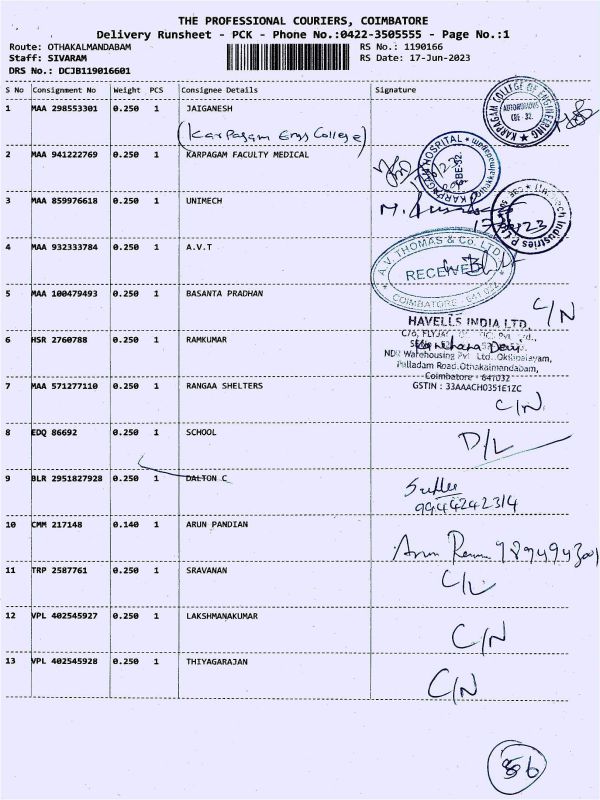 THE PROFESSIONAL COURIERS, COIMBATORE
Delivery Runsheet - PCK - Phone No.:0422-3505555 - Page No.:1
Route: OTHAKALMANDABAM RS No.: 1190166
Staff: SIVARAM RS Date: 17-Jun-2023
DRS No.: DCJB119016601
S No Consignment No Weight PCS Consignee Details Signature
1 MAA 298553301 0.250 1 JAIGANESH
(Karpagam Engg College)
KARPAGAM COLLEGE OF ENGINEERING
AUTONOMOUS
CBE - 32.
2 MAA 941222769 0.250 1 KARPAGAM FACULTY MEDICAL
KARPAGAM HOSPITAL
CBE-32.
3 MAA 859976618 0.250 1 UNIMECH
4 MAA 932333784 0.250 1 A.V.T
A.V. THOMAS & Co. LTD
RECEIVED
COIMBATORE - 641 021
5 MAA 100479493 0.250 1 BASANTA PRADHAN
C/N
HAVELLS INDIA LTD.
6 HSR 2760788 0.250 1 RAMKUMAR
NDR Warehousing Pvt Ltd., Okkilipalayam,
Palladam Road, Othakalmandabam,
Coimbatore - 641032
GSTIN : 33AAACH0351E1ZC
7 MAA 571277110 0.250 1 RANGAA SHELTERS
C/N
8 EDQ 86692 0.250 1 SCHOOL
D/L
9 BLR 2951827928 0.250 1 DALTON C
9944242314
10 CMM 217148 0.140 1 ARUN PANDIAN
Arun
11 TRP 2587761 0.250 1 SRAVANAN
C/L
12 VPL 402545927 0.250 1 LAKSHMANAKUMAR
C/N
13 VPL 402545928 0.250 1 THIYAGARAJAN
C/N
86